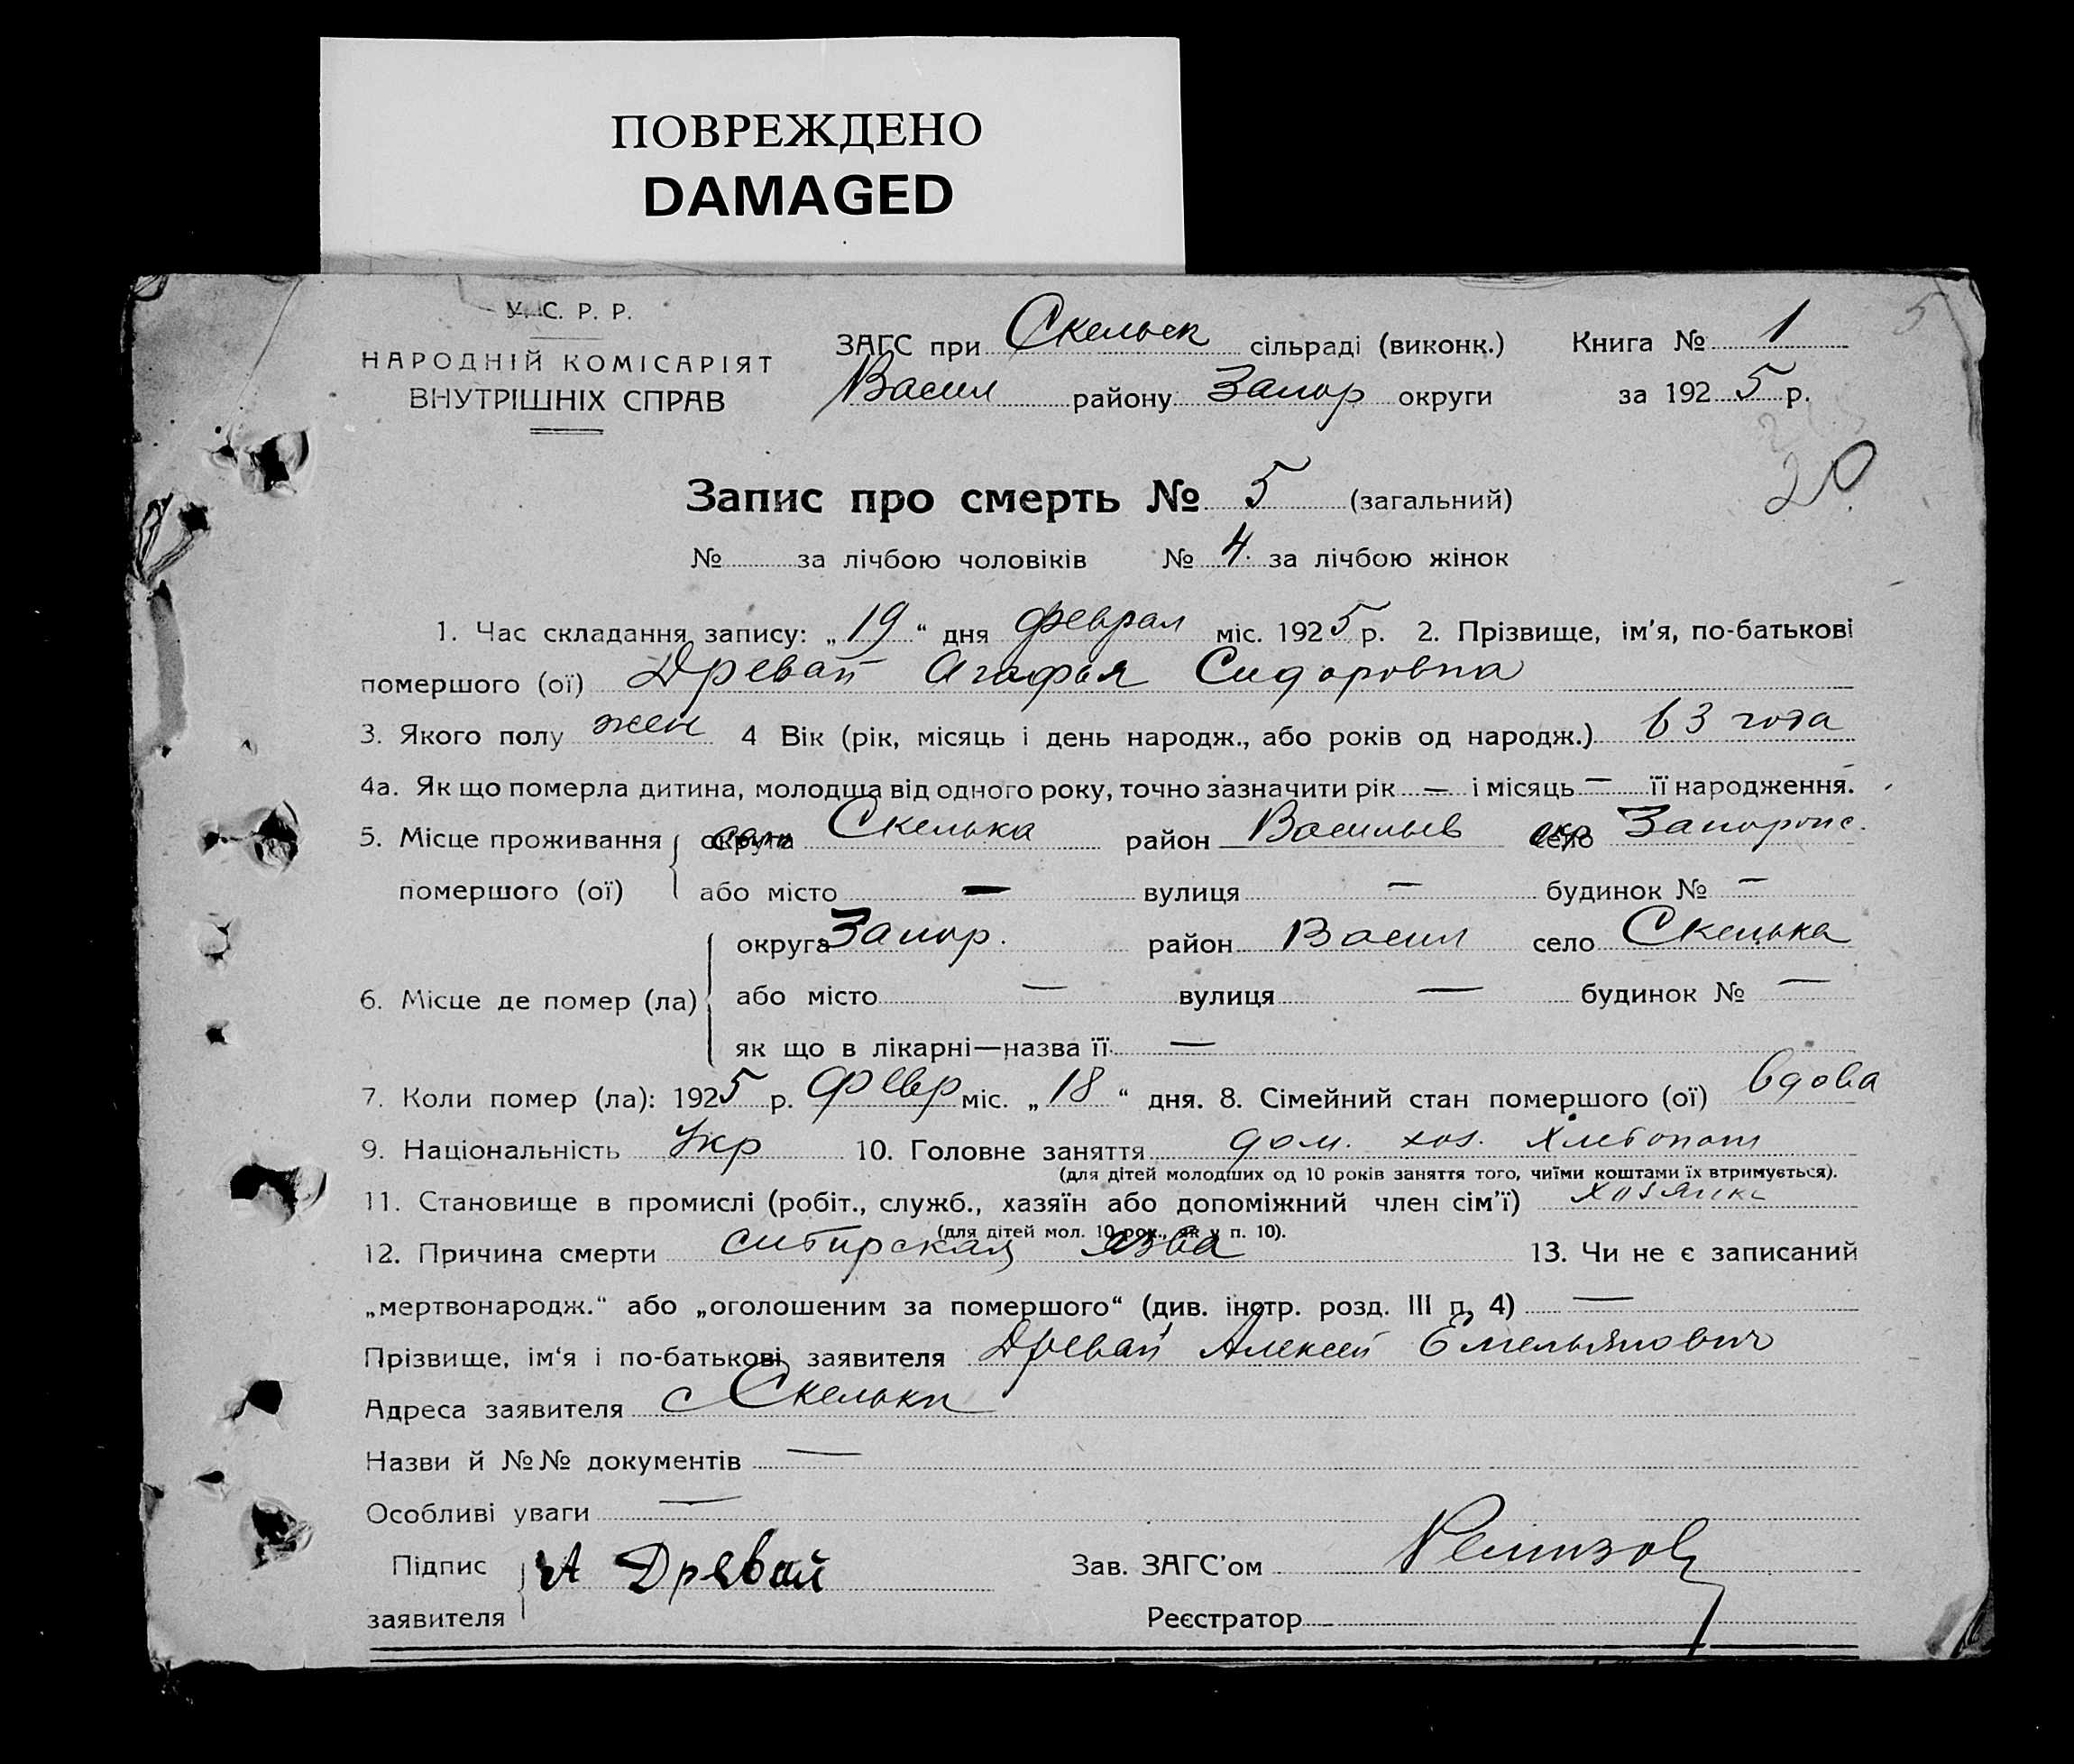 ПОВРЕЖДЕНО
DAMAGED
У. С. Р. Р.
НАРОДНІЙ КОМІСАРІЯТ
ВНУТРІШНІХ СПРАВ
ЗАГС при Скельск сільраді (виконк.) Книга № 1
Васил району Запор округи за 1925 р.
5
20
Запис про смерть № 5 (загальний)
№ за лічбою чоловіків № 4. за лічбою жінок
1. Час складання запису: „19“ дня феврал міс. 1925 р. 2. Прізвище, ім'я, по-батькові
помершого (ої) Древаӣ Агафья Сидоровна
3. Якого полу жен 4 Вік (рік, місяць і день народж., або років од народж.) 63 года
4а. Як що померла дитина, молодша від одного року, точно зазначити рік — і місяць — її народження.
5. Місце проживання округа Скелька район Васильев село окр Запорож.
помершого (ої) або місто — вулиця — будинок № —
округа Запор. район Васил село Скелька
6. Місце де помер (ла) або місто — вулиця — будинок № —
як що в лікарні—назва її —
7. Коли помер (ла): 1925 р. Февр міс. „18“ дня. 8. Сімейний стан помершого (ої) вдова
9. Національність Укр 10. Головне заняття дом. хоз. Хлебопаш
(для дітей молодших од 10 років заняття того, чиїми коштами їх втримується).
11. Становище в промислі (робіт., служб., хазяїн або допоміжний член сім'ї) хозяйка
(для дітей мол. 10 рок., як у п. 10).
12. Причина смерти сибирская язва 13. Чи не є записаний
„мертвонародж.“ або „оголошеним за помершого“ (див. інстр. розд. III п. 4) —
Прізвище, ім'я і по-батькові заявителя Древай Алексей Емельянович
Адреса заявителя с Скельки
Назви й №№ документів —
Особливі уваги —
Підпис А Древай Зав. ЗАГС'ом
заявителя Реєстратор